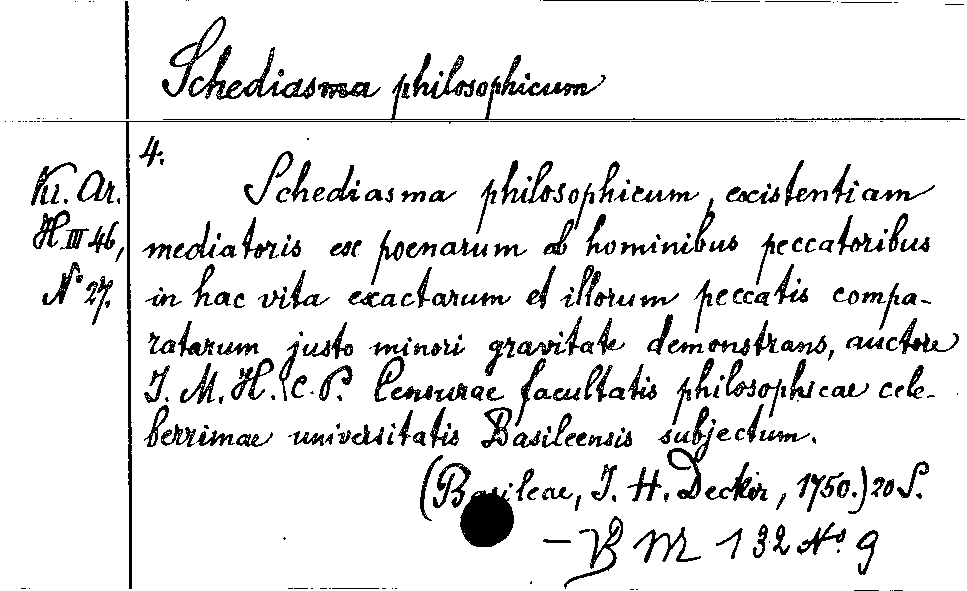 Schediasma philosophicum
4.
Ki. Ar.
H III 46,
N° 27.
Schediasma philosophicum, existentiam
mediatoris ex poenarum ab hominibus peccatoribus
in hac vita exactarum et illorum peccatis compa-
ratarum justo minori gravitate demonstrans, auctore
J. M. H. C. P. Censurae facultatis philosophicae cele-
berrimae universitatis Basileensis subjectum.
(Basileae, J. H. Decker, 1750.) 20 S.
- VB M 132 N° 9